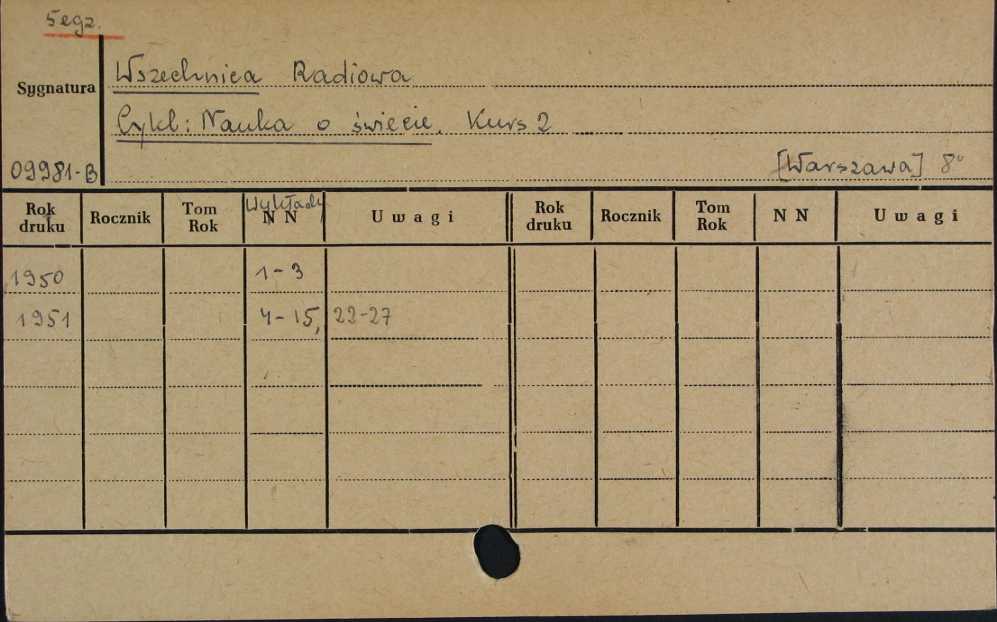 5 egz.
Wszechnica Radiowa
Sygnatura
Cykl: Nauka o świecie. Kurs 2
09981-B
[Warszawa] 8°
Rok druku Rocznik Tom Rok Wykłady N N Uwagi Rok druku Rocznik Tom Rok N N Uwagi
1950 1-3
1951 4-15, 22-27